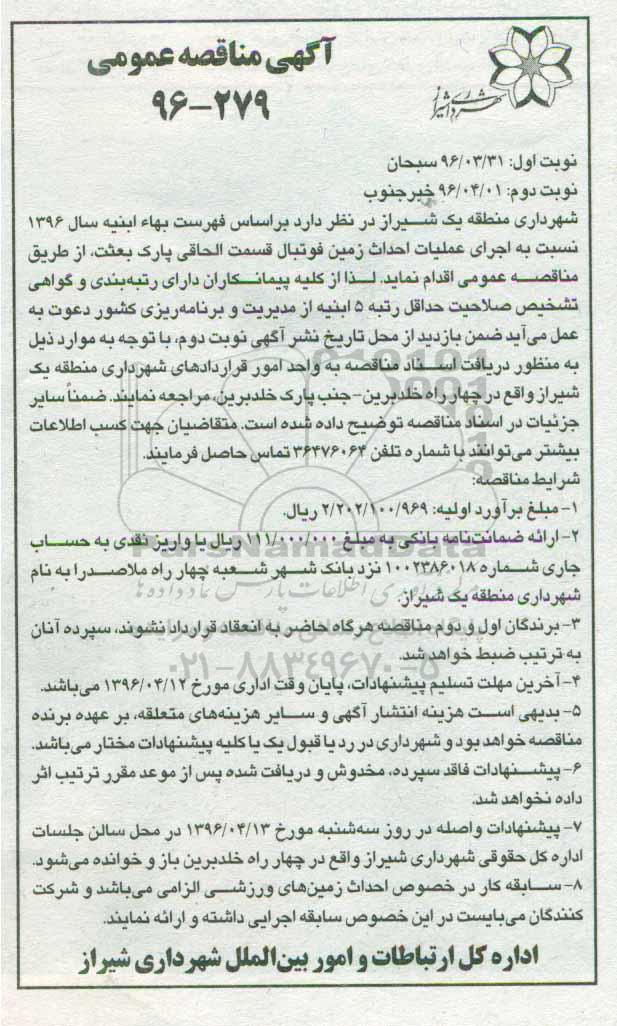 آگهی مناقصه عمومی
۹۶-۲۷۹
شهرداری شیراز
نوبت اول: ۹۶/۰۳/۳۱ سبحان
نوبت دوم: ۹۶/۰۴/۰۱ خبر جنوب
شهرداری منطقه یک شیراز در نظر دارد براساس فهرست بهاء ابنیه سال ۱۳۹۶
نسبت به اجرای عملیات احداث زمین فوتبال قسمت الحاقی پارک بعثت، از طریق
مناقصه عمومی اقدام نماید. لذا از کلیه پیمانکاران دارای رتبه‌بندی و گواهی
تشخیص صلاحیت حداقل رتبه ۵ ابنیه از مدیریت و برنامه‌ریزی کشور دعوت به
عمل می‌آید ضمن بازدید از محل تاریخ نشر آگهی نوبت دوم، با توجه به موارد ذیل
به منظور دریافت اسناد مناقصه به واحد امور قراردادهای شهرداری منطقه یک
شیراز واقع در چهار راه خلدبرین-جنب پارک خلدبرین، مراجعه نمایند. ضمناً سایر
جزئیات در اسناد مناقصه توضیح داده شده است. متقاضیان جهت کسب اطلاعات
بیشتر می‌توانند با شماره تلفن ۳۶۴۷۶۰۶۴ تماس حاصل فرمایند.
شرایط مناقصه:
۱- مبلغ برآورد اولیه: ۲/۲۰۲/۱۰۰/۹۶۹ ریال.
۲- ارائه ضمانت‌نامه بانکی به مبلغ ۱۱۱/۰۰۰/۰۰۰ ریال یا واریز نقدی به حساب
جاری شماره ۱۰۰۲۳۸۶۰۱۸ نزد بانک شهر شعبه چهار راه ملاصدرا به نام
شهرداری منطقه یک شیراز.
۳- برندگان اول و دوم مناقصه هرگاه حاضر به انعقاد قرارداد نشوند، سپرده آنان
به ترتیب ضبط خواهد شد.
۴- آخرین مهلت تسلیم پیشنهادات، پایان وقت اداری مورخ ۱۳۹۶/۰۴/۱۲ می‌باشد.
۵- بدیهی است هزینه انتشار آگهی و سایر هزینه‌های متعلقه، بر عهده برنده
مناقصه خواهد بود و شهرداری در رد یا قبول یک یا کلیه پیشنهادات مختار می‌باشد.
۶- پیشنهادات فاقد سپرده، مخدوش و دریافت شده پس از موعد مقرر ترتیب اثر
داده نخواهد شد.
۷- پیشنهادات واصله در روز سه‌شنبه مورخ ۱۳۹۶/۰۴/۱۳ در محل سالن جلسات
اداره کل حقوقی شهرداری شیراز واقع در چهار راه خلدبرین باز و خوانده می‌شود.
۸- سابقه کار در خصوص احداث زمین‌های ورزشی الزامی می‌باشد و شرکت
کنندگان می‌بایست در این خصوص سابقه اجرایی داشته و ارائه نمایند.
اداره کل ارتباطات و امور بین‌الملل شهرداری شیراز
ParsNamadData
۰۲۱-۸۸۳۴۹۶۷۰-۵